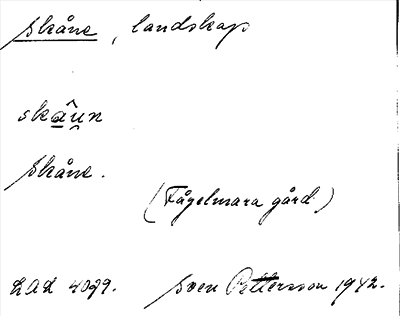 Skåne, landskap
skâu̯n
Skåne.
(Fågelmara gård)
LAL 4099. Sven Pettersson 1942.